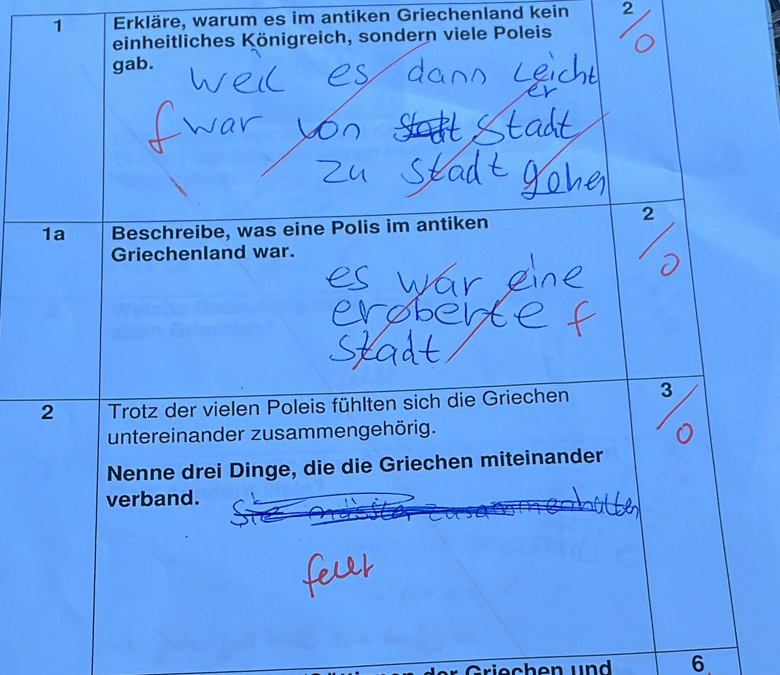 1 Erkläre, warum es im antiken Griechenland kein 2
einheitliches Königreich, sondern viele Poleis 0
gab.
weil es dann leicht
er
f war von Stadt Stadt
zu Stadt gehen
1a Beschreibe, was eine Polis im antiken 2
Griechenland war. 0
es war eine
eroberte f
Stadt
2 Trotz der vielen Poleis fühlten sich die Griechen 3
untereinander zusammengehörig. 0
Nenne drei Dinge, die die Griechen miteinander
verband.
Sie müssten zusammenhalten
fehlt
der Griechen und 6